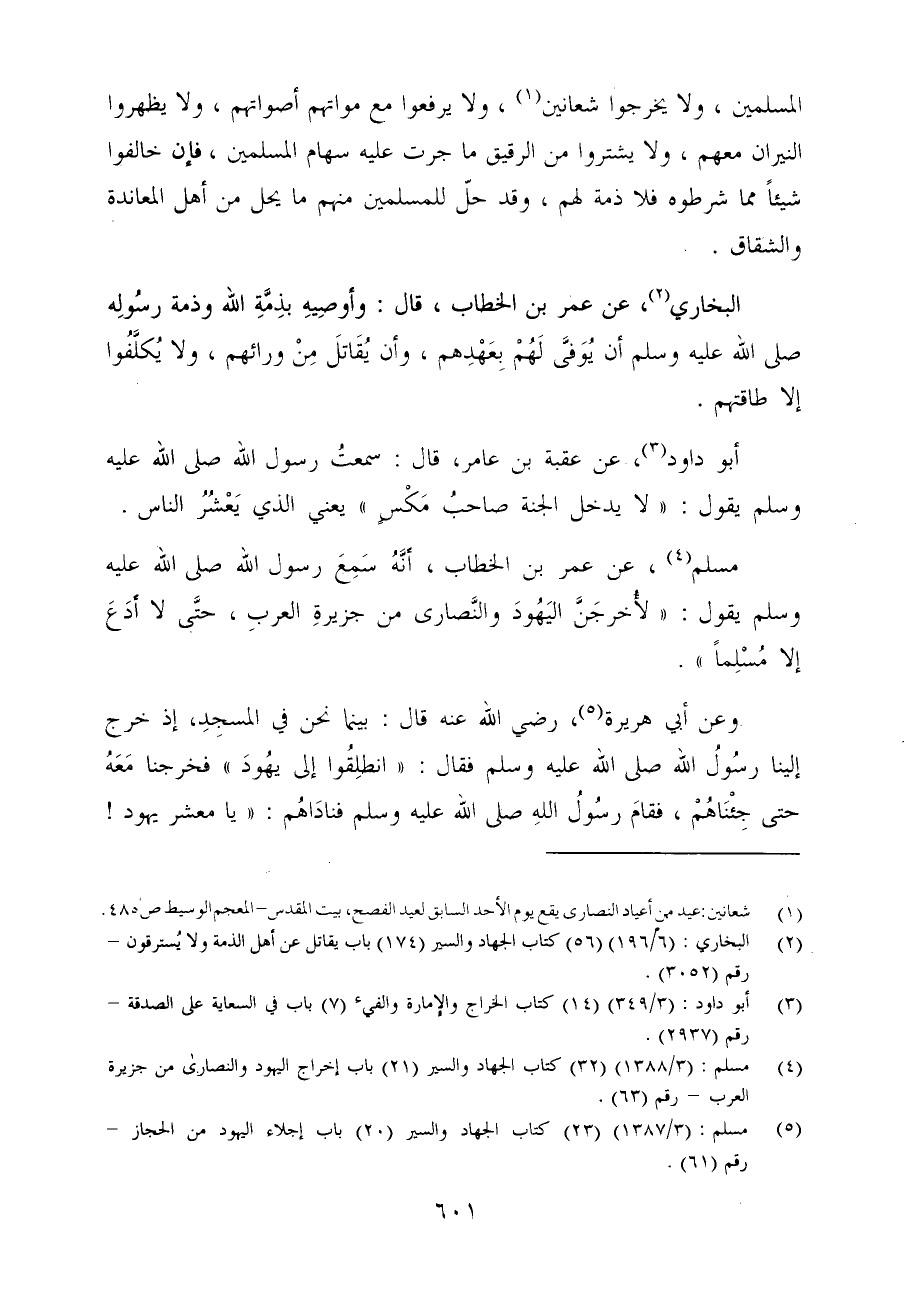 المسلمين ، ولا يخرجوا شعانين(١) ، ولا يرفعوا مع مواتهم أصواتهم ، ولا يظهروا
النيران معهم ، ولا يشتروا من الرقيق ما جرت عليه سهام المسلمين ، فإن خالفوا
شيئاً مما شرطوه فلا ذمة لهم ، وقد حلّ للمسلمين منهم ما يحل من أهل المعاندة
والشقاق .
البخاري(٢)، عن عمر بن الخطاب ، قال : وأوصِيهِ بذِمَّةِ الله وذمة رسُولِه
صلى الله عليه وسلم أن يُوَفَّى لَهُمْ بِعَهْدِهم ، وأن يُقَاتلَ مِنْ ورائهم ، ولا يُكلَّفُوا
إلا طاقتهم .
أبو داود(٣)، عن عقبة بن عامر، قال : سمعتُ رسول الله صلى الله عليه
وسلم يقول : « لا يدخل الجنة صاحبُ مَكْسٍ » يعني الذي يَعْشُرُ الناس .
مسلم(٤) ، عن عمر بن الخطاب ، أنَّهُ سَمِعَ رسول الله صلى الله عليه
وسلم يقول : « لأُخرجَنَّ اليَهُودَ والنَّصارى من جزيرةِ العربِ ، حتَّى لا أدَعَ
إلا مُسْلِماً » .
وعن أبي هريرة(٥)، رضي الله عنه قال : بينما نحن في المسجِدِ، إذ خرج
إلينا رسُولُ الله صلى الله عليه وسلم فقال : « انطلِقُوا إلى يهُودَ » فخرجنا مَعَهُ
حتى جِئْنَاهُمْ ، فقامَ رسُولُ اللهِ صلى الله عليه وسلم فنادَاهُم : « يا معشر يهود !
(١) شعانين:عيد من أعياد النصارى يقع يوم الأحد السابق لعيد الفصح، بيت المقدس–المعجم الوسيط ص٤٨٥.
(٢) البخاري : (١٩٦/٦) (٥٦) كتاب الجهاد والسير (١٧٤) باب يقاتل عن أهل الذمة ولا يُسترقون –
رقم (٣٠٥٢) .
(٣) أبو داود : (٣٤٩/٣) (١٤) كتاب الخراج والإمارة والفيء (٧) باب في السعاية على الصدقة –
رقم (٢٩٣٧) .
(٤) مسلم : (١٣٨٨/٣) (٣٢) كتاب الجهاد والسير (٢١) باب إخراج اليهود والنصارىٰ من جزيرة
العرب – رقم (٦٣) .
(٥) مسلم : (١٣٨٧/٣) (٢٣) كتاب الجهاد والسير (٢٠) باب إجلاء اليهود من الحجاز –
رقم (٦١) .
٦٠١